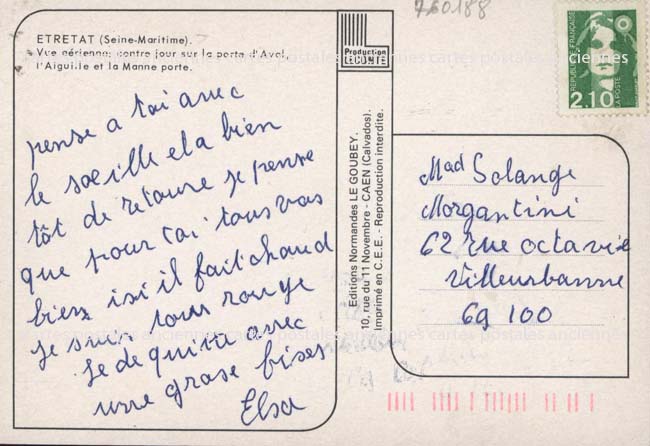 760188
ETRETAT (Seine-Maritime).
Vue aérienne: contre jour sur la porte d'Aval,
l'Aiguille et la Manne porte.
Production
LECONTE
REPUBLIQUE FRANÇAISE
LA POSTE
2,10
Editions Normandes LE GOUBEY.
10, rue du 11 Novembre - CAEN (Calvados).
Imprimé en C.E.E. - Reproduction interdite.
pense a toi avec
le soeille et a bien
tôt de retoure je pense
que pour toi tous vas
bien isi il fait chaud
je suis tous rouge
je de quitte avec
une grose bises
Elsa
Mad Solange
Morgantini
62 rue octavie
Villeurbanne
69 100
cartes postales anciennes